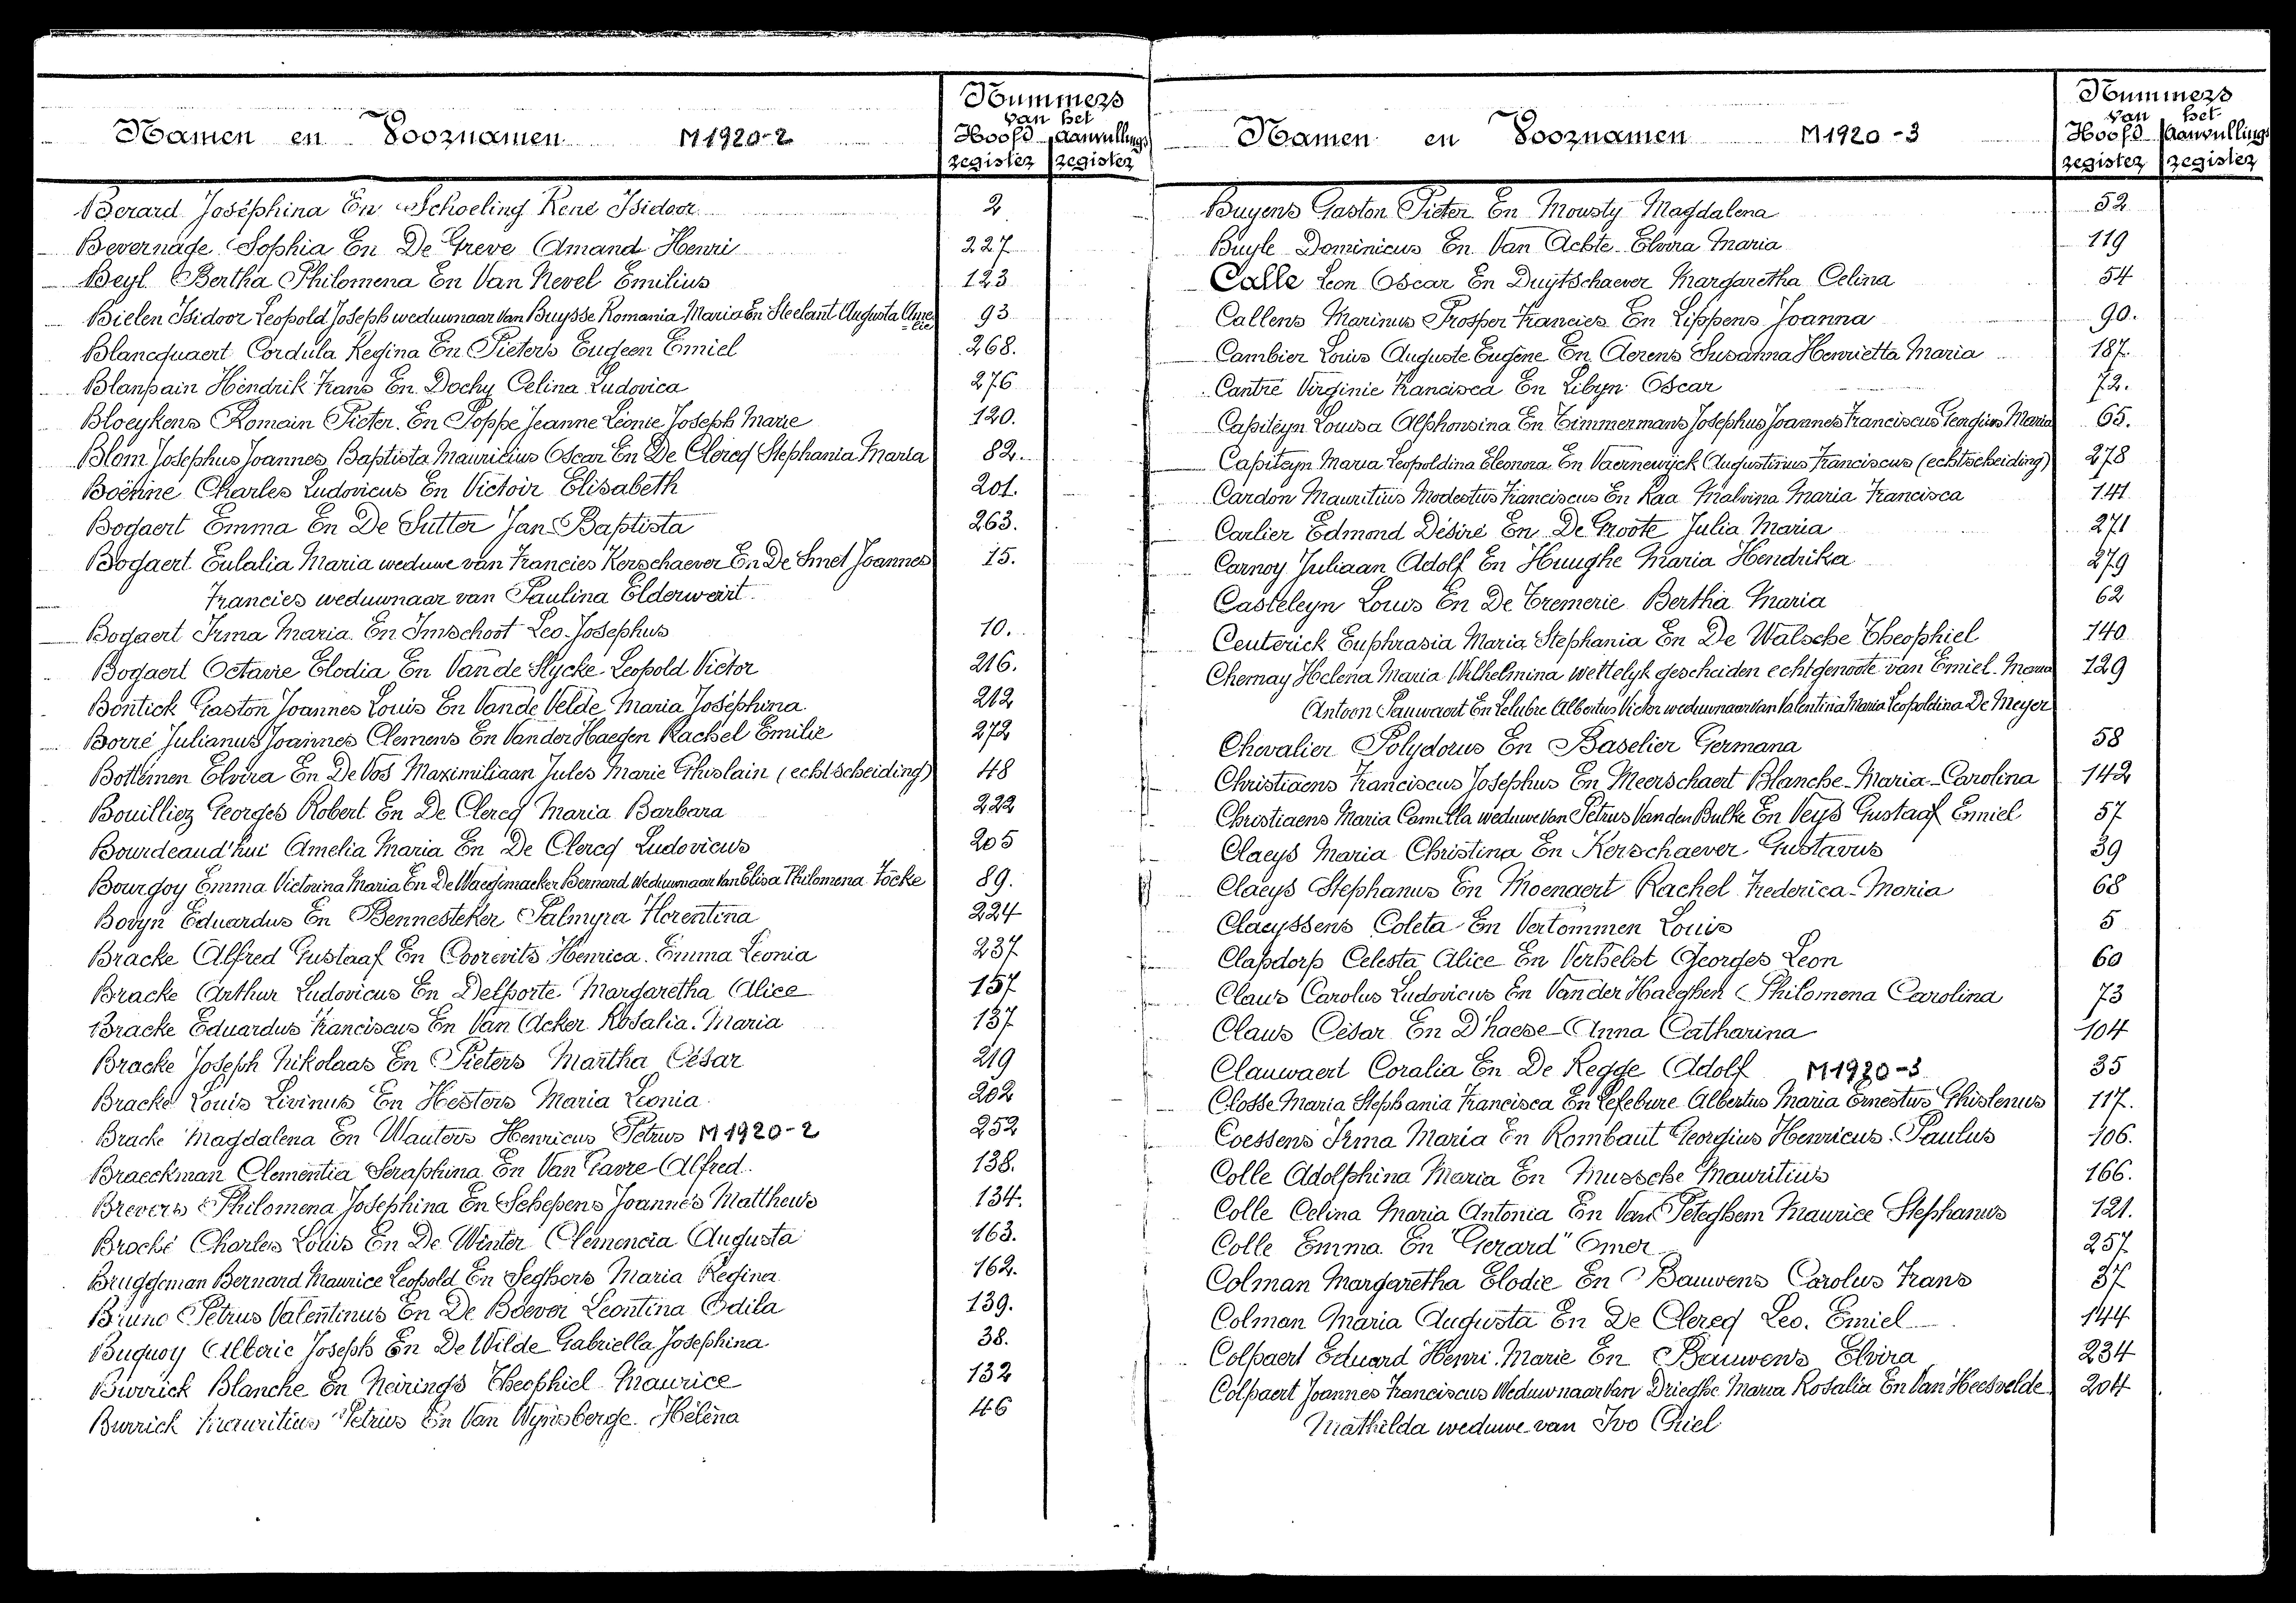 Namen en Voornamen M1920-2 Nummers van het Hoofd register Aanvullings register
Berard Joséphina En Schoeling René Isidoor 2
Bevernage Sophia En De Greve Amand Henri 227
Beyl Bertha Philomena En Van Nevel Emilius 123
Bielen Isidoor Leopold Joseph weduwnaar Van Buysse Romania Maria En Steelant Augusta Amelie 93
Blancquaert Cordula Regina En Pieters Eugeen Emiel 268.
Blanpain Hendrik Frans En Dochy Celina Ludovica 276
Bloeykens Romain Pieter En Poppe Jeanne Léonie Joseph Marie 120.
Blom Josephus Joannes Baptista Mauricius Oscar En De Clercq Stephania Maria 82.
Boënne Charles Ludovicus En Victoir Elisabeth 201.
Bogaert Emma En De Sutter Jan Baptista 263.
Bogaert Eulalia Maria weduwe van Francies Kerschaever En De Smet Joannes 15.
Francies weduwnaar van Paulina Elderweirt
Bogaert Irma Maria En Imschoot Leo Josephus 10.
Bogaert Octavie Elodia En Van de Slycke Leopold Victor 216.
Bontick Gaston Joannes Louis En Van de Velde Maria Joséphina 212
Borré Julianus Joannes Clemens En Van der Haegen Rachel Emilie 272
Bottemen Elvira En De Vos Maximiliaan Jules Marie Ghislain (echtscheiding) 48
Bouilliez Georges Robert En De Clercq Maria Barbara 222
Bourdeaud'hui Amelia Maria En De Clercq Ludovicus 205
Bourgoy Emma Victorina Maria En De Waegemaeker Bernard weduwnaar Van Elisa Philomena Focke 89.
Bovyn Eduardus En Bennesteker Palmyra Florentina 224
Bracke Alfred Gustaaf En Coorevits Henrica Emma Leonia 237
Bracke Arthur Ludovicus En Delporte Margaretha Alice 157
Bracke Eduardus Franciscus En Van Acker Rosalia Maria 137
Bracke Joseph Nikolaas En Pieters Martha César 219
Bracke Louis Livinus En Hesters Maria Leonia 202
Bracke Magdalena En Wauters Henricus Petrus M1920-2 252
Braeckman Clementia Seraphina En Van Gavre Alfred 138.
Brevers Philomena Josephina En Schepens Joannes Mattheus 134.
Broché Charles Louis En De Winter Clemencia Augusta 163.
Bruggeman Bernard Maurice Leopold En Seghers Maria Regina 162.
Bruno Petrus Valentinus En De Boever Leontina Odila 139.
Buquoy Alberic Joseph En De Wilde Gabriella Josephina 38.
Burrick Blanche En Neirings Theophiel Maurice 132
Burrick Mauritius Petrus En Van Wynsberge Hélèna 46
Namen en Voornamen M1920-3 Nummers van het Hoofd register Aanvullings register
Buyens Gaston Pieter En Mousty Magdalena 52
Buyle Dominicus En Van Achte Elvira Maria 119
Calle Leon Oscar En Duytschaever Margaretha Celina 54
Callens Marinus Prosper Francies En Lippens Joanna 90.
Cambier Louis Auguste Eugène En Aerens Susanna Henrietta Maria 187.
Cantré Virginie Francisca En Libyn Oscar 72.
Capiteyn Louisa Alphonsina En Timmermans Josephus Joannes Franciscus Georgius Maria 65.
Capiteyn Maria Leopoldina Eleonora En Vaernewijck Augustinus Franciscus (echtscheiding) 278
Cardon Mauritius Modestus Franciscus En Raa Malvina Maria Francisca 141
Carlier Edmond Désiré En De Groote Julia Maria 271
Carnoy Juliaan Adolf En Huughe Maria Hendrika 279
Casteleyn Louis En De Tremerie Bertha Maria 62
Ceuterick Euphrasia Maria Stephania En De Walsche Theophiel 140
Chemay Helena Maria Wilhelmina wettelyk gescheiden echtgenoote van Emiel Maria 129
Antoon Pauwaert En Lelubre Albertus Victor weduwnaar van Valentina Maria Leopoldina De Meyer
Chevalier Polydorus En Baselier Germana 58
Christiaens Franciscus Josephus En Meerschaert Blanche Maria Carolina 142
Christiaens Maria Camilla weduwe van Petrus Van den Bulke En Veys Gustaaf Emiel 57
Claeys Maria Christina En Kerschaever Gustavus 39
Claeys Stephanus En Moenaert Rachel Frederica Maria 68
Claeyssens Coleta En Vertommen Louis 5
Clapdorp Celesta Alice En Verhelst Georges Leon 60
Claus Carolus Ludovicus En Van der Haeghen Philomena Carolina 73
Claus César En D'haese Anna Catharina 104
Clauwaert Coralia En De Regge Adolf M1920-3 35
Closse Maria Stephania Francisca En Lefebure Albertus Maria Ernestus Ghislenus 117.
Coessens Irma Maria En Rombaut Georgius Henricus Paulus 106.
Colle Adolphina Maria En Mussche Mauritius 166.
Colle Celina Maria Antonia En Van Peteghem Maurice Stephanus 121.
Colle Emma En "Gerard" Omer 257
Colman Margaretha Elodie En Bauwens Carolus Frans 37
Colman Maria Augusta En De Clercq Leo Emiel 144
Colpaert Eduard Henri Marie En Bauwens Elvira 234
Colpaert Joannes Franciscus Weduwnaar Van Drieghe Maria Rosalia En Van Heesvelde 204
Mathilda weduwe van Ivo Chiel